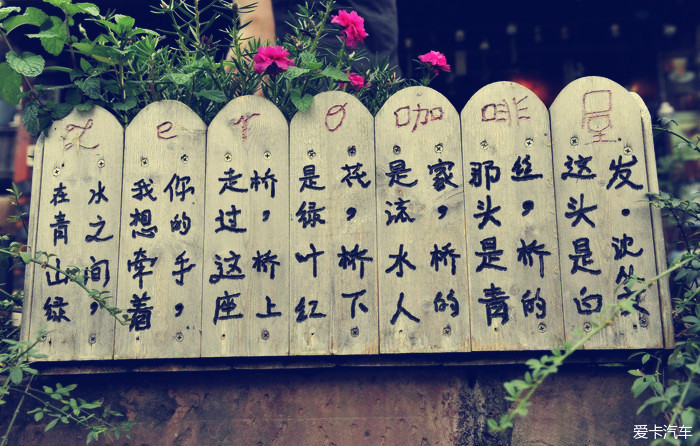 Zero咖啡屋
在青山绿
水之间，
我想牵着
你的手，
走过这座
桥，桥上
是绿叶红
花，桥下
是流水人
家，桥的
那头是青
丝，桥的
这头是白
发。沈从文
爱卡汽车